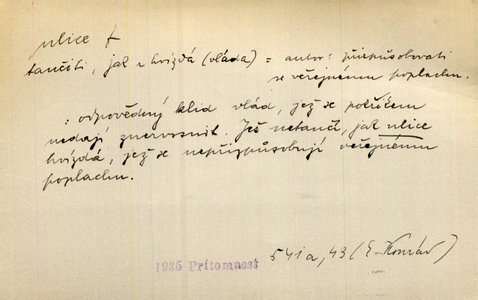 ulice f
tančiti, jak u hvízdá (vláda) = autor: přizpůsobovati
se veřejnému poplachu.
: odpovědný klid vlád, jež se pokřikem
nedají znervosnit. Jež netančí, jak ulice
hvízdá, jež se nepřizpůsobují veřejnému
poplachu.
1935 Přítomnost 541a, 43 (E. Konrád)